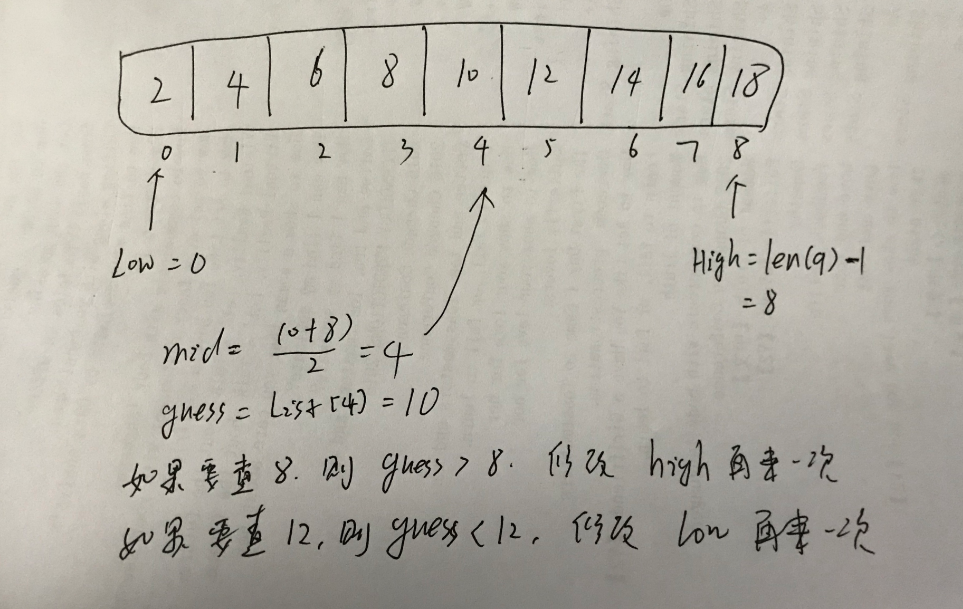 2 4 6 8 10 12 14 16 18
0 1 2 3 4 5 6 7 8
Low = 0
High = len(9) - 1
= 8
mid = (0+8)/2 = 4
guess = List[4] = 10
如果要查 8. 则 guess > 8. 修改 high 再来一次
如果要查 12, 则 guess < 12, 修改 low 再来一次